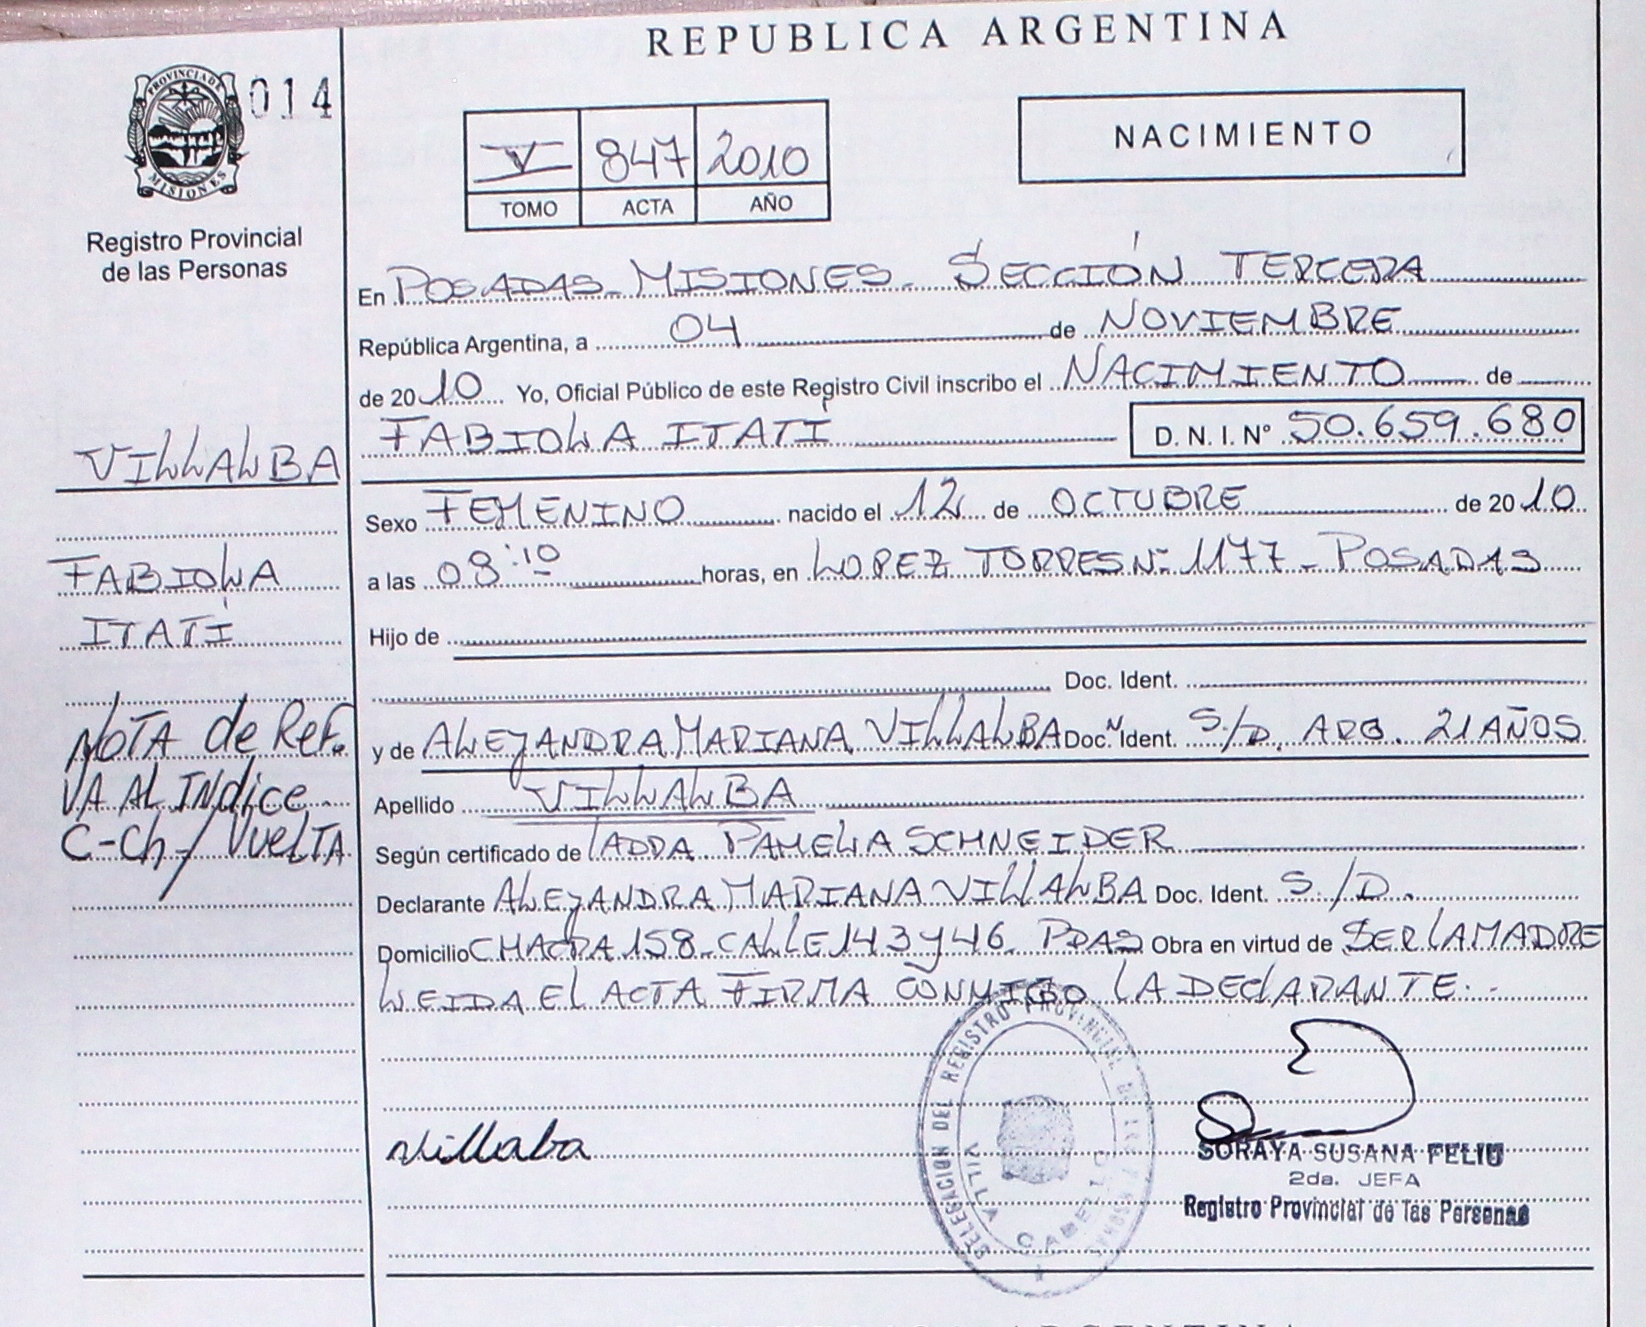 REPUBLICA ARGENTINA
PROVINCIA DE
MISIONES
014
Registro Provincial
de las Personas
V 847 2010
TOMO ACTA AÑO
NACIMIENTO
En POSADAS - MISIONES - SECCIÓN TERCERA
República Argentina, a 04 de NOVIEMBRE
de 2010 Yo, Oficial Público de este Registro Civil inscribo el NACIMIENTO de
FABIOLA ITATÍ D. N. I. Nº 50.659.680
VILLALBA
FABIOLA
ITATÍ
NOTA de Ref.
VA AL INdice
C-Ch / VueLTA
Sexo FEMENINO nacido el 12 de OCTUBRE de 2010
a las 08:10 horas, en LOPEZ TORRES Nº 1177 - POSADAS
Hijo de
Doc. Ident.
y de ALEJANDRA MARIANA VILLALBA Doc. Ident. S/D. ARG. 21 AÑOS
Apellido VILLALBA
Según certificado de LADDA PAMELA SCHNEIDER
Declarante ALEJANDRA MARIANA VILLALBA Doc. Ident. S./D.
Domicilio CHACRA 158 - CALLE 143 y 46 - PDAS Obra en virtud de SER LA MADRE
LEIDA EL ACTA FIRMA CONMIGO LA DECLARANTE.-
Villaba
DELEGACION DEL REGISTRO PROVINCIAL DE LAS PERSONAS
VILLA CABELLO
SORAYA SUSANA FELIU
2da. JEFA
Registro Provincial de las Personas